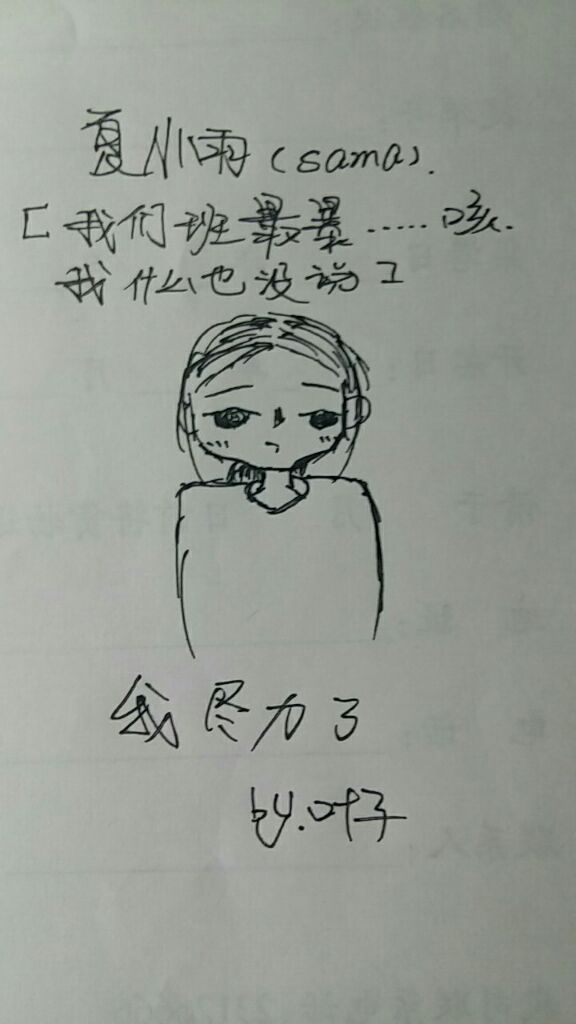 夏小雨(sama).
[我们班最暴……咳.
我什么也没说]
我尽力了
by.叶子